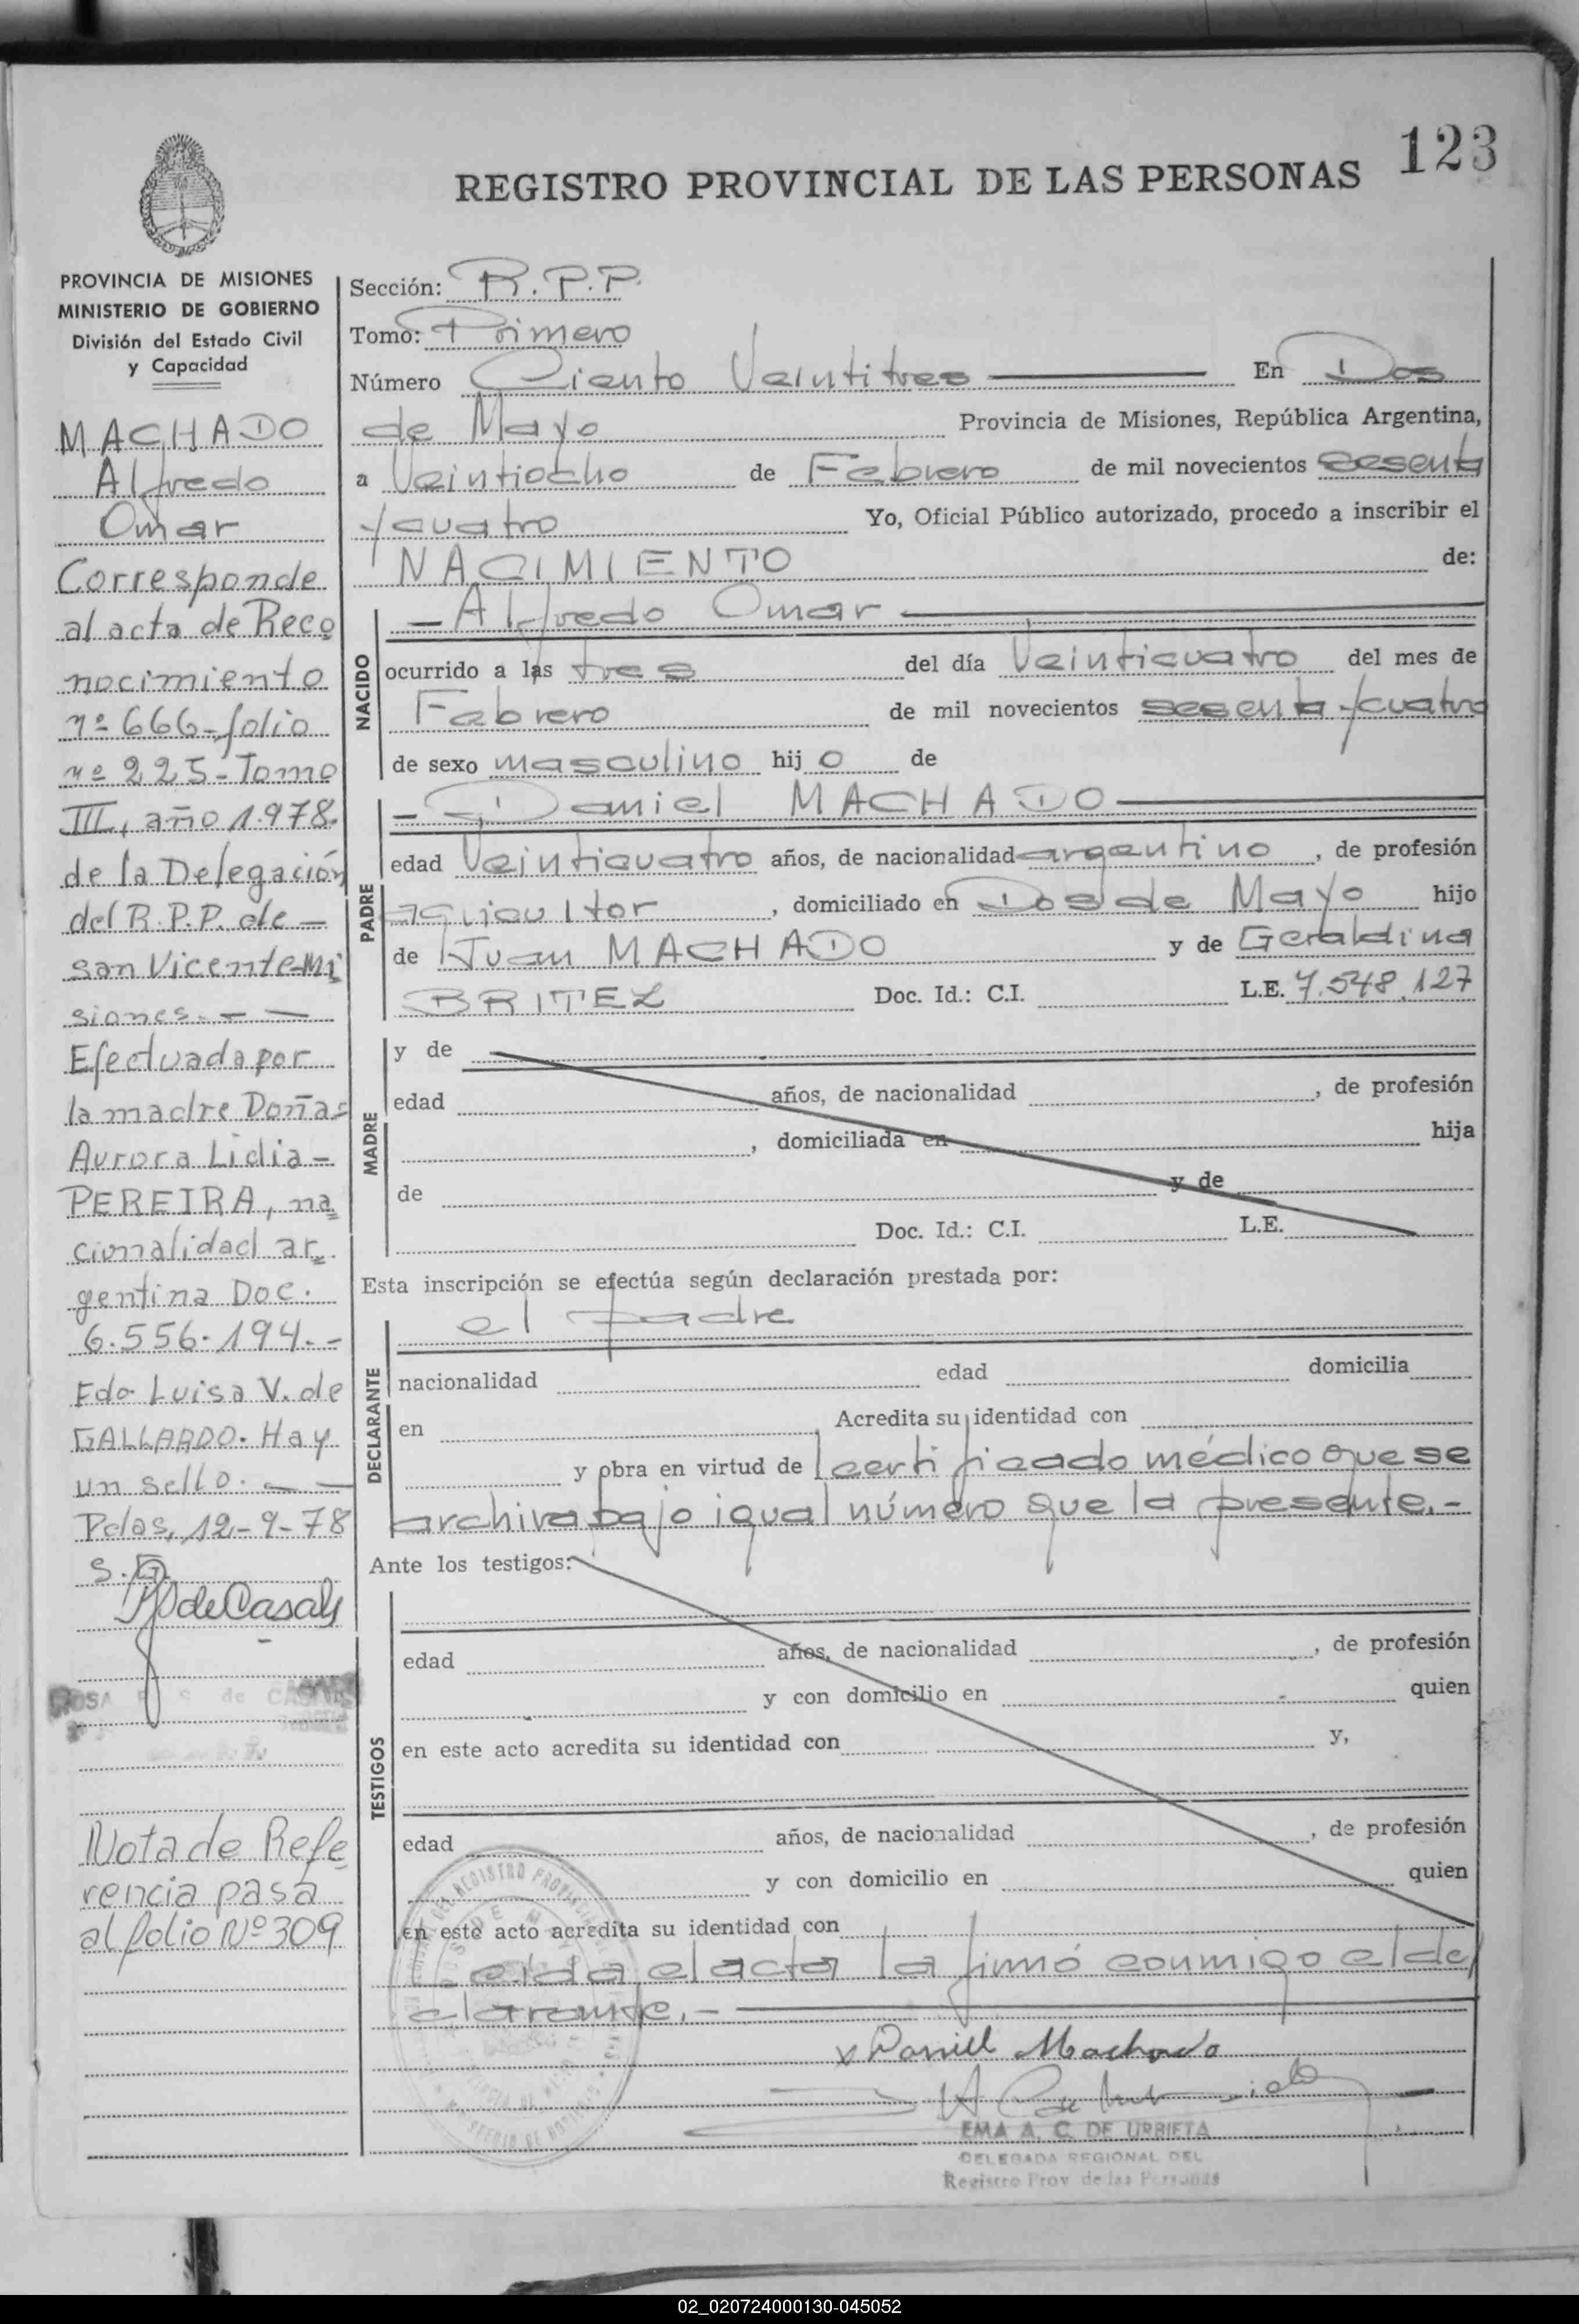 123
REGISTRO PROVINCIAL DE LAS PERSONAS
PROVINCIA DE MISIONES
MINISTERIO DE GOBIERNO
División del Estado Civil
y Capacidad
MACHADO
Alfredo
Omar
Corresponde
al acta de Reco
nocimiento
nº 666-folio
nº 225-Tomo
III, año 1.978.
de la Delegación
del R.P.P. de —
san Vicente-Mi
siones. — —
Efectuada por
la madre Doña
Aurora Lidia -
PEREIRA, na
cionalidad ar
gentina Doc.
6.556.194.-
Fdo Luisa V. de
GALLARDO. Hay
un sello. — —
Pdas, 12-9-78
de Casals
ROSA de
Nota de Refe
rencia pasa
al folio Nº 309
Sección: R.P.P.
Tomo: Primero
Número Ciento Veintitres — En Dos
de Mayo Provincia de Misiones, República Argentina,
a Veintiocho de Febrero de mil novecientos sesenta
y cuatro Yo, Oficial Público autorizado, procedo a inscribir el
NACIMIENTO de:
NACIDO
— Alfredo Omar —
ocurrido a las tres del día Veinticuatro del mes de
Febrero de mil novecientos sesenta y cuatro
de sexo masculino hijo de
PADRE
— Daniel MACHADO —
edad Veinticuatro años, de nacionalidad argentino, de profesión
agricultor, domiciliado en Dos de Mayo hijo
de Juan MACHADO y de Geraldina
BRITEZ Doc. Id.: C.I. L.E. 7.548.127
MADRE
y de
edad años, de nacionalidad , de profesión
, domiciliada en hija
de y de
Doc. Id.: C.I. L.E.
Esta inscripción se efectúa según declaración prestada por:
DECLARANTE
el padre
nacionalidad edad domicilia
en Acredita su identidad con
y obra en virtud de certificado médico que se
archiva bajo igual número que la presente.-
Ante los testigos:
TESTIGOS
edad años, de nacionalidad , de profesión
y con domicilio en quien
en este acto acredita su identidad con y,
edad años, de nacionalidad , de profesión
y con domicilio en quien
en este acto acredita su identidad con
Leida el acta la firmó conmigo el de
clarante.-
x Daniel Machado
EMA A. C. DE URRIETA
DELEGADA REGIONAL DEL
Registro Prov. de las Personas
02_020724000130-045052